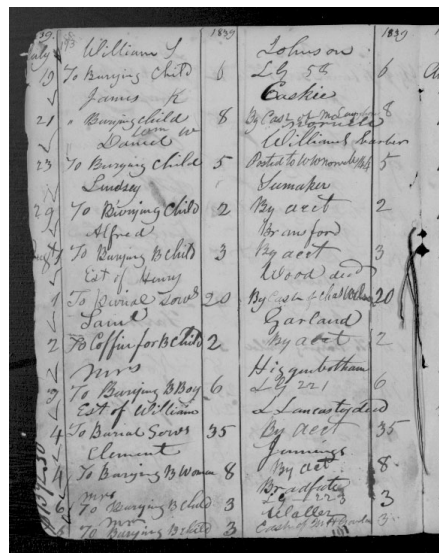 39. 193 1839 1839
July William S Johnson
19 To Burying Child 6 LG 58 6
James K Caskie
21 " Burying child 8 By Cash 8
Daniel W Williams
23 To Burying Child 5 Posted to W W 5
Lindsey Sumaker
29 To Burying Child 2 By acct 2
Alfred Bransford
To Burying B Child 3 By acct 3
Est of Henry Wood decd
1 To Burial Sows 20 By Cash of Chas 20
Saml Garland
2 To Coffin for B Child 2 By acct 2
Mrs Higginbotham
3 To Burying B Boy 6 LG 221 6
Est of William L Lancaster decd
4 To Burial Sows 35 By acct 35
Clement Jennings
4 To Burying B Woman 8 By act 8
Mrs Bradfute
6 To Burying B Child 3 223 3
Mrs Waller
To Burying B Child 3 Cash of 3